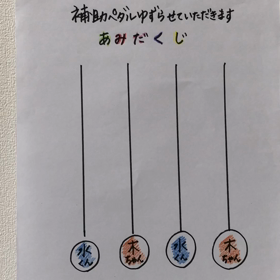 補助ペダルゆずらせていただきます
あみだくじ
水くん 木ちゃん 水くん 木ちゃん